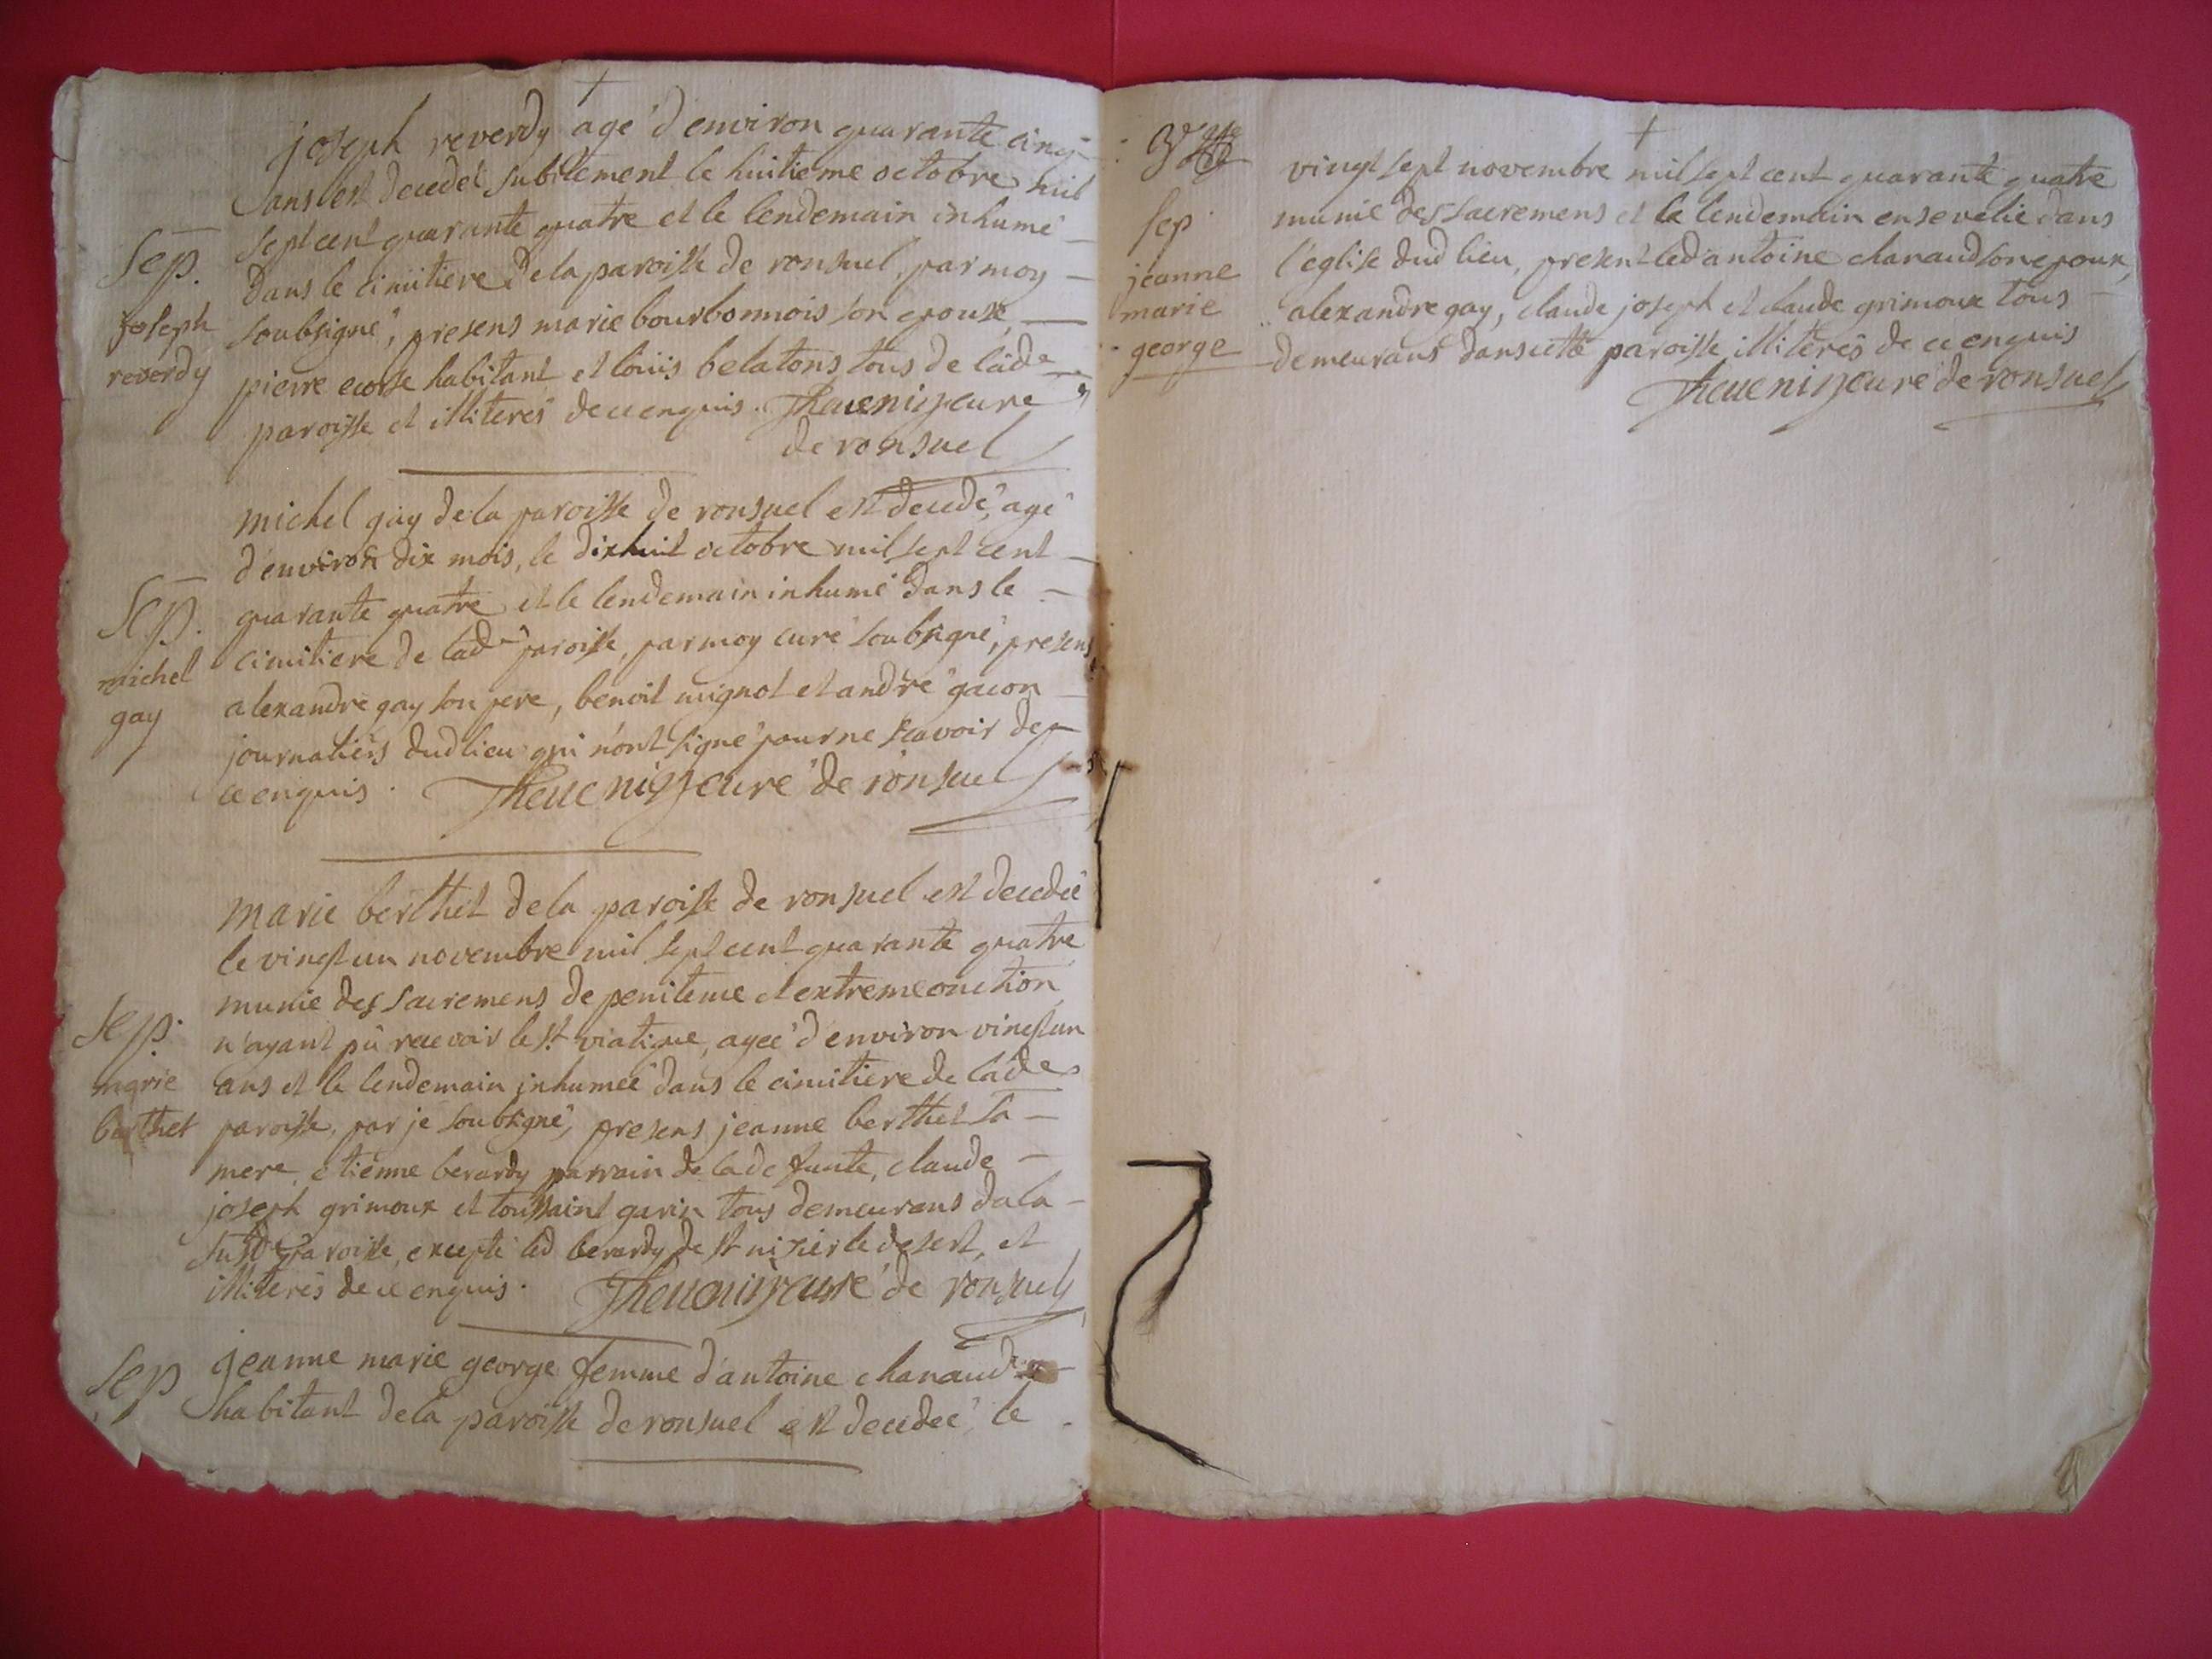 joseph reverdy agé d'environ quarante cinq
ans est decedé subitement le huitieme octobre mil
sept cent quarante quatre et le lendemain inhumé
Sep.
joseph
reverdy
dans le cimitiere de la paroisse de ronsuel, par moy
soubsigné, presens marie bourbonnois son epouse,
pierre ecorse habitant et loüis belatons tous de lad.e
paroisse et illiterés de ce enquis. Thevenin curé
de ronsuel
michel gay de la paroisse de ronsuel est decedé, agé
d'environ dix mois, le dixhuit octobre mil sept cent
Sep.
michel
gay
quarante quatre et le lendemain inhumé dans le
cimitiere de lad.e paroisse, par moy curé soubsigné, presens
alexandre gay son pere, benoit mignot et andré gacon
journaliers dud lieu qui n'ont signé pour ne scavoir de
ce enquis. Thevenin curé de ronsuel
marie berthet de la paroisse de ronsuel est decedeé
le vingt un novembre mil sept cent quarante quatre
munie des sacremens de penitence et extremeonction
Sep.
marie
berthet
n'ayant pû recevoir le st viatique, ageé d'environ vingt un
ans et le lendemain inhumeé dans le cimitiere de lad.e
paroisse, par je soubsigné, presens jeanne berthet sa
mere, etienne berardy parrain de la defunte, claude
joseph grimoux et toussaint guerin tous demeurans da la
susd.e paroisse, excepté led berardy de st nizier le desert, et
illiterés de ce enquis. Thevenin curé de ronsuel
Sep
jeanne marie george femme d'antoine chanaud
habitant de la paroisse de ronsuel est decedeé, le
3e
Sep
jeanne
marie
george
vingt sept novembre mil sept cent quarante quatre
munie des sacremens et le lendemain ensevelie dans
l'eglise dud lieu, present led antoine chanaud son epoux,
alexandre gay, claude joseph et claude grimoux tous
demeurans dans cette paroisse illiterés de ce enquis
Thevenin curé de ronsuel